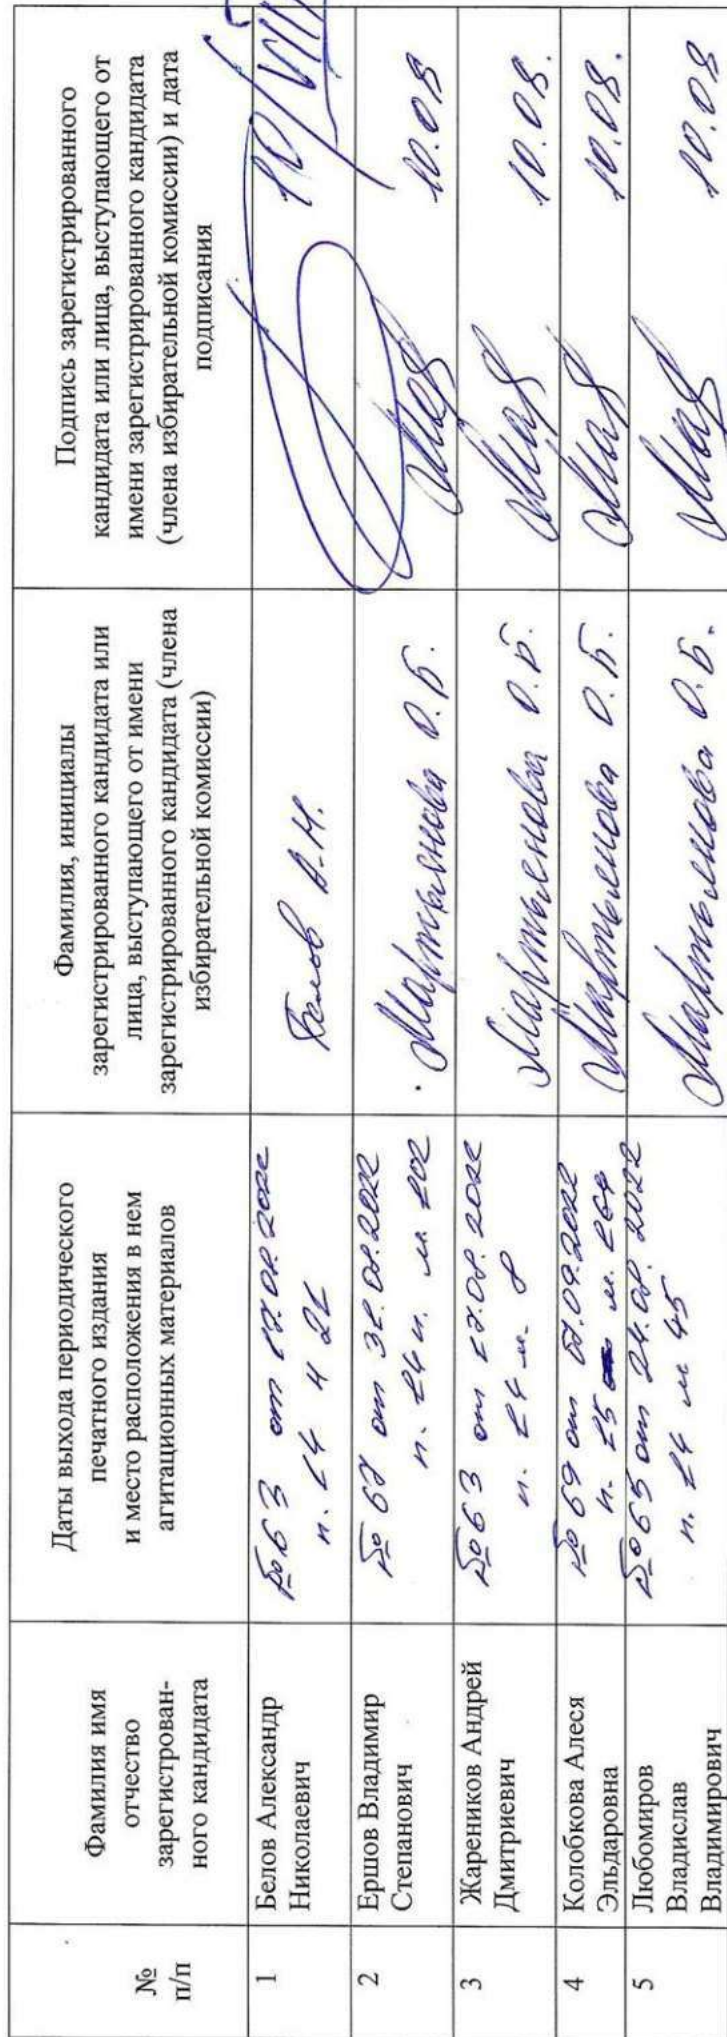 №
п/п
Фамилия имя
отчество
зарегистрирован-
ного кандидата
Даты выхода периодического
печатного издания
и место расположения в нем
агитационных материалов
Фамилия, инициалы
зарегистрированного кандидата или
лица, выступающего от имени
зарегистрированного кандидата (члена
избирательной комиссии)
Подпись зарегистрированного
кандидата или лица, выступающего от
имени зарегистрированного кандидата
(члена избирательной комиссии) и дата
подписания
1
Белов Александр
Николаевич
№ 63 от 17.08.2022
п. 14
Белов А.Н.
10/VIII
2
Ершов Владимир
Степанович
№ 67 от 31.08.2022
п. 14 м. 102
Мартьянова О.Б.
10.08
3
Жареников Андрей
Дмитриевич
№ 63 от 17.08.2022
п. 14 м. 8
Мартьянова О.Б.
10.08.
4
Колобкова Алеся
Эльдаровна
№ 69 от 07.09.2022
п. 15 м. 164
Мартьянова О.Б.
10.08.
5
Любомиров
Владислав
Владимирович
№ 65 от 24.08.2022
п. 14 м 45
Мартьянова О.Б.
10.08